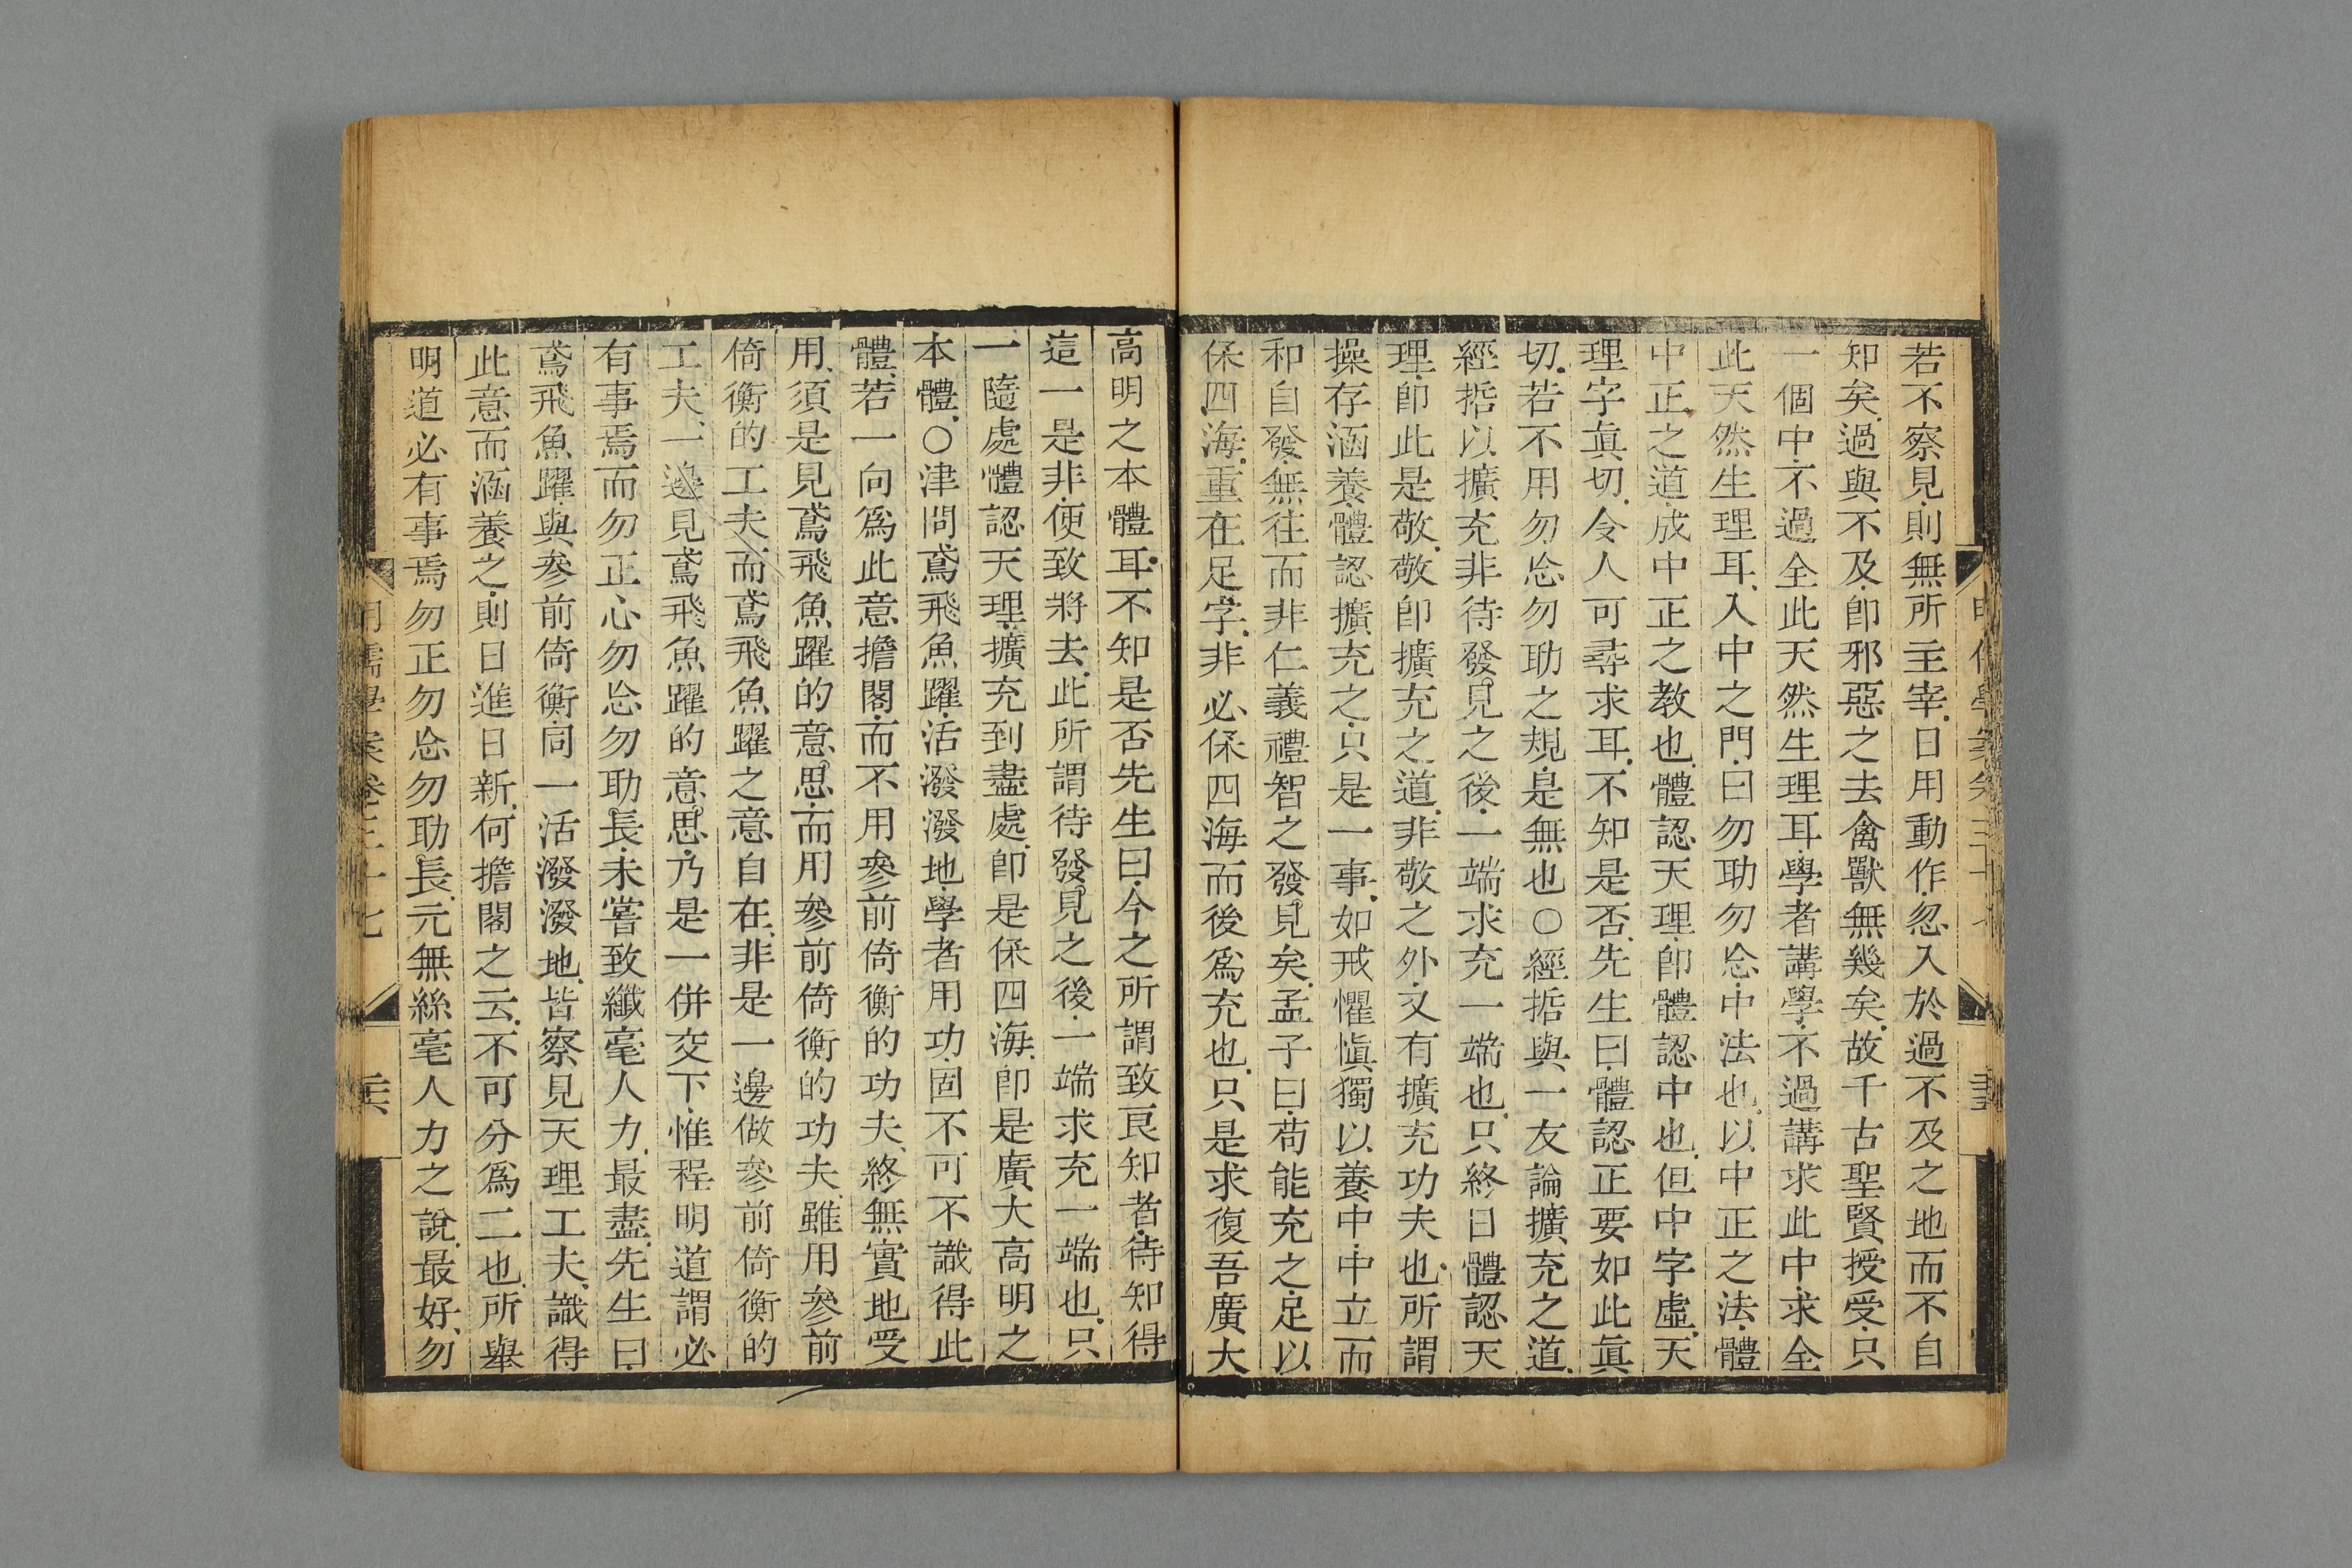 若不察見則無所主宰日用動作忽入於過不及之地而不自
知矣過與不及卽邪惡之去禽獸無幾矣故千古聖賢授受只
一個中不過全此天然生理耳學者講學不過講求此中求全
此天然生理耳入中之門曰勿助勿忘中法也以中正之法體
中正之道成中正之教也體認天理卽體認中也但中字虛天
理字眞切令人可尋求耳不知是否先生曰體認正要如此眞
切若不用勿忘勿助之規是無也〇經掂與一友論擴充之道
經掂以擴充非待發見之後一端求充一端也只終日體認天
理卽此是敬敬卽擴充之道非敬之外又有擴充功夫也所謂
操存涵養體認擴充之只是一事如戒懼愼獨以養中中立而
和自發無往而非仁義禮智之發見矣孟子曰苟能充之足以
保四海重在足字非必保四海而後爲充也只是求復吾廣大
高明之本體耳不知是否先生曰今之所謂致良知者待知得
這一是非便致將去此所謂待發見之後一端求充一端也只
一隨處體認天理擴充到盡處卽是保四海卽是廣大高明之
本體〇津問鳶飛魚躍活潑潑地學者用功固不可不識得此
體若一向爲此意擔閣而不用參前倚衡的功夫終無實地受
用須是見鳶飛魚躍的意思而用參前倚衡的功夫雖用參前
倚衡的工夫而鳶飛魚躍之意自在非是一邊做參前倚衡的
工夫一邊見鳶飛魚躍的意思乃是一併交下惟程明道謂必
有事焉而勿正心勿忘勿助長未嘗致纖毫人力最盡先生曰
鳶飛魚躍與參前倚衡同一活潑潑地皆察見天理工夫識得
此意而涵養之則日進日新何擔閣之云不可分爲二也所舉
明道必有事焉勿正勿忘勿助長元無絲毫人力之說最好勿
明儒學案卷三十七